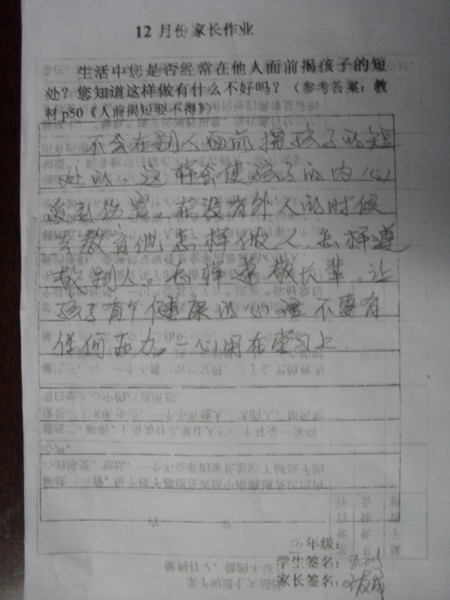 12月份家长作业
生活中您是否经常在他人面前揭孩子的短
处？您知道这样做有什么不好吗？（参考答案：教
材p50《人前揭短要不得》）
不会在别人面前揭孩子的短
处的，这样会使孩子的内心
受到伤害，在没有外人的时候
去教育他怎样做人，怎样尊
敬别人，怎样尊敬长辈，让
孩子有个健康的心理不要有
任何压力。一心用在学习上
年级：
学生签名：
家长签名：